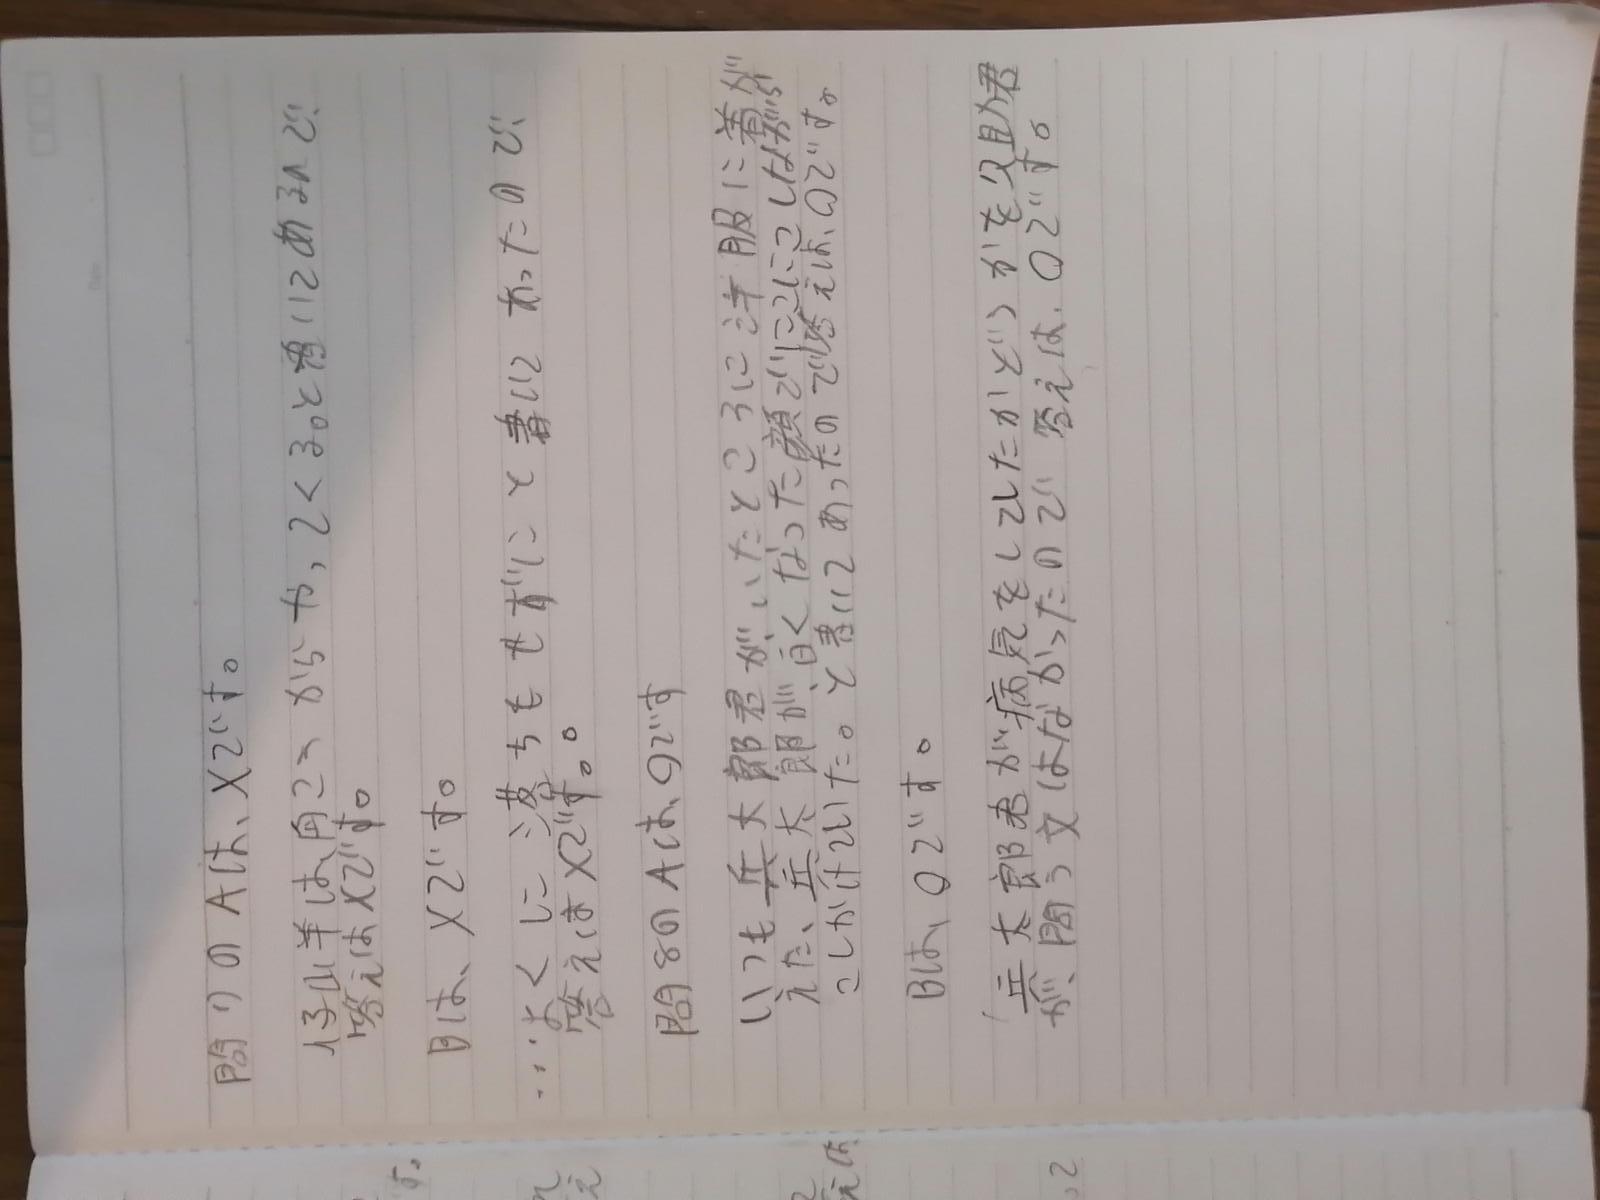 問7のAは、×です。
仔山羊は、角こつからや、てくる。と書いてあるので
答えは×です。
Bは、×です。
…よくに、落ちもせずにと書いてあったので
答えは×です。
問8のAは、○です
いつも兵太郎君がいたところに洋服に着が
えた、兵太郎が、白くなった顔でにこにこしながら
こしかけていた。と書いてあったので答えは、○です。
Bは、○です。
兵太郎君が病気をしてしたかどうかを久助君
が、問う文はなかったので答えは、○です。
す。
え
えは